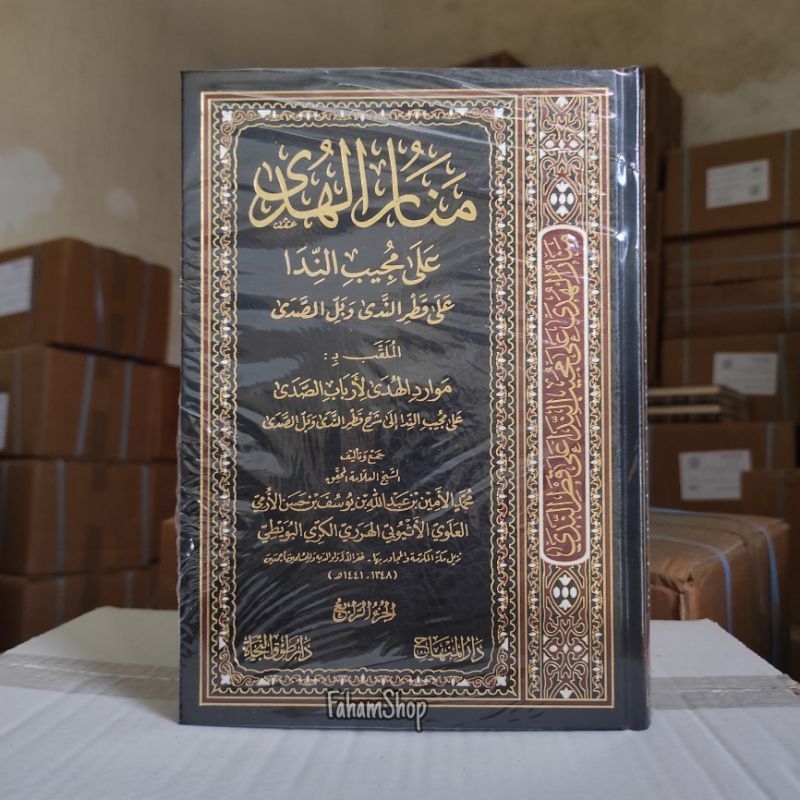 مَنَارُ الهُدَى
عَلَى مُجِيبِ النِّدَا
عَلَى قَطْرِ النَّدَى وَبَلِّ الصَّدَى
المُلَقَّب بِـ :
مَوَارِدِ الهُدَى لِأَرْبَابِ الصَّدَى
عَلَى مُجِيبِ النِّدَا إِلَى شَرْحِ قَطْرِ النَّدَى وَبَلِّ الصَّدَى
جمع وتأليف
الشيخ العلامة المحقق
مُحَمَّد الأَمِين بن عَبْد الله بن يُوسُف بن حَسَن الأُرَمِي
العَلَوِي الأَثْيُوبِي الهَرَرِي الكَرِّي البُوَيْطِي
نزيل مكة المكرمة والمجاور بها - غفر الله له ولوالديه وللمسلمين أجمعين
( ١٣٤٨ - ١٤٤١ هـ )
الجُزْءُ الرَّابِعُ
دَارُ المِنْهَاج
دَار طَوْق النَّجَاة
مَنَارُ الهُدَى عَلَى مُجِيبِ النِّدَا عَلَى قَطْرِ النَّدَى
FahamShop